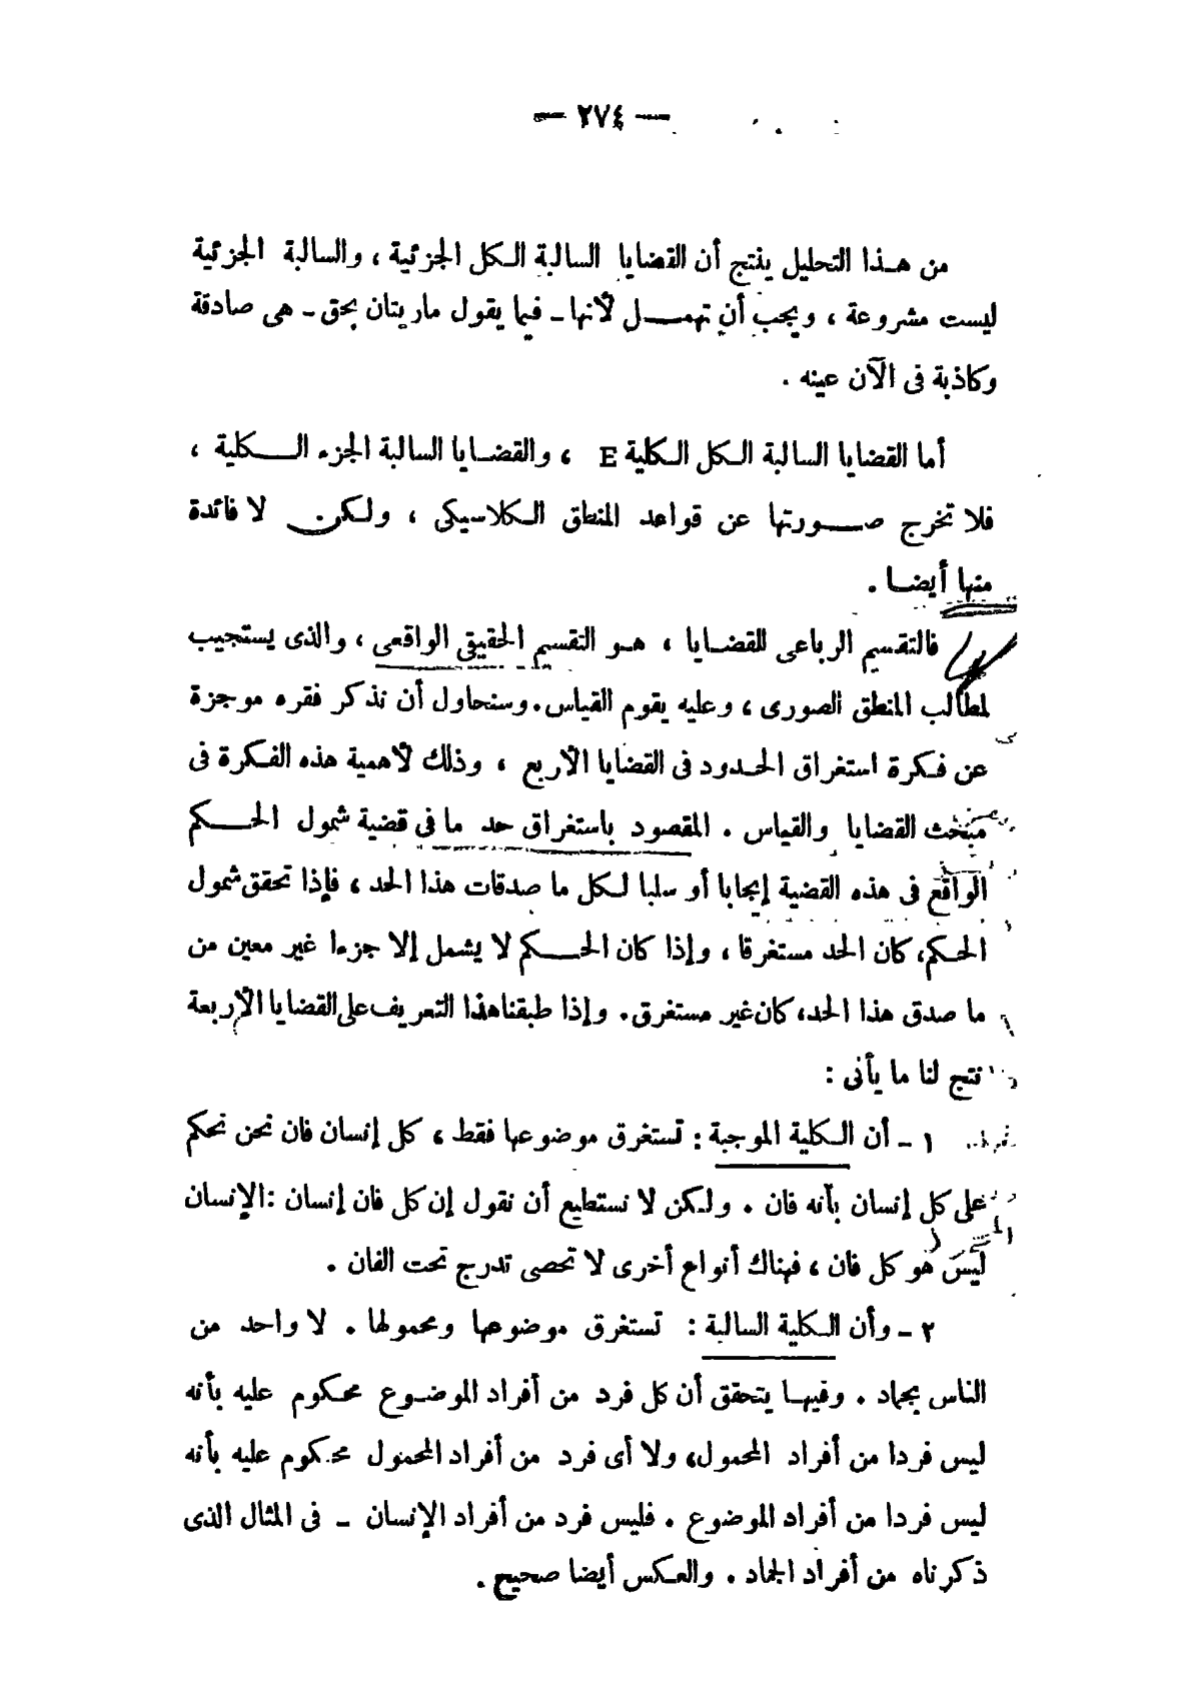 — ٢٧٤ —
من هذا التحليل ينتج أن القضايا السالبة الكل الجزئية ، والسالبة الجزئية
ليست مشروعة ، ويجب أن تهمل لأنها ـ فيما يقول ماريتان بحق ـ هى صادقة
وكاذبة فى الآن عينه .
أما القضايا السالبة الكل الكلية E ، والقضايا السالبة الجزء الكلية ،
فلا تخرج صورتها عن قواعد المنطق الكلاسيكى ، ولكن لا فائدة
منها أيضا .
فالتقسيم الرباعى للقضايا ، هو التقسيم الحقيقى الواقعى ، والذى يستجيب
لمطالب المنطق الصورى ، وعليه يقوم القياس . وسنحاول أن نذكر فقره موجزة
عن فكرة استغراق الحدود فى القضايا الأربع ، وذلك لأهمية هذه الفكرة فى
مبحث القضايا والقياس . المقصود باستغراق حد ما فى قضية شمول الحكم
الواقع فى هذه القضية إيجابا أو سلبا لكل ما صدقات هذا الحد ، فإذا تحقق شمول
الحكم، كان الحد مستغرقا ، وإذا كان الحكم لا يشمل إلا جزءا غير معين من
ما صدق هذا الحد، كان غير مستغرق . وإذا طبقنا هذا التعريف على القضايا الأربعة
نتج لنا ما يأتى :
١ ـ أن الكلية الموجبة : تستغرق موضوعها فقط ، كل إنسان فان نحن نحكم
على كل إنسان بأنه فان . ولكن لا نستطيع أن نقول إن كل فان إنسان : الإنسان
ليس هو كل فان ، فهناك أنواع أخرى لا تحصى تدرج تحت الفان .
٢ ـ وأن الكلية السالبة : تستغرق موضوعها ومحمولها . لا واحد من
الناس بجماد . وفيها يتحقق أن كل فرد من أفراد الموضوع محكوم عليه بأنه
ليس فردا من أفراد المحمول، ولا أى فرد من أفراد المحمول محكوم عليه بأنه
ليس فردا من أفراد الموضوع . فليس فرد من أفراد الإنسان ـ فى المثال الذى
ذكرناه من أفراد الجماد . والعكس أيضا صحيح .